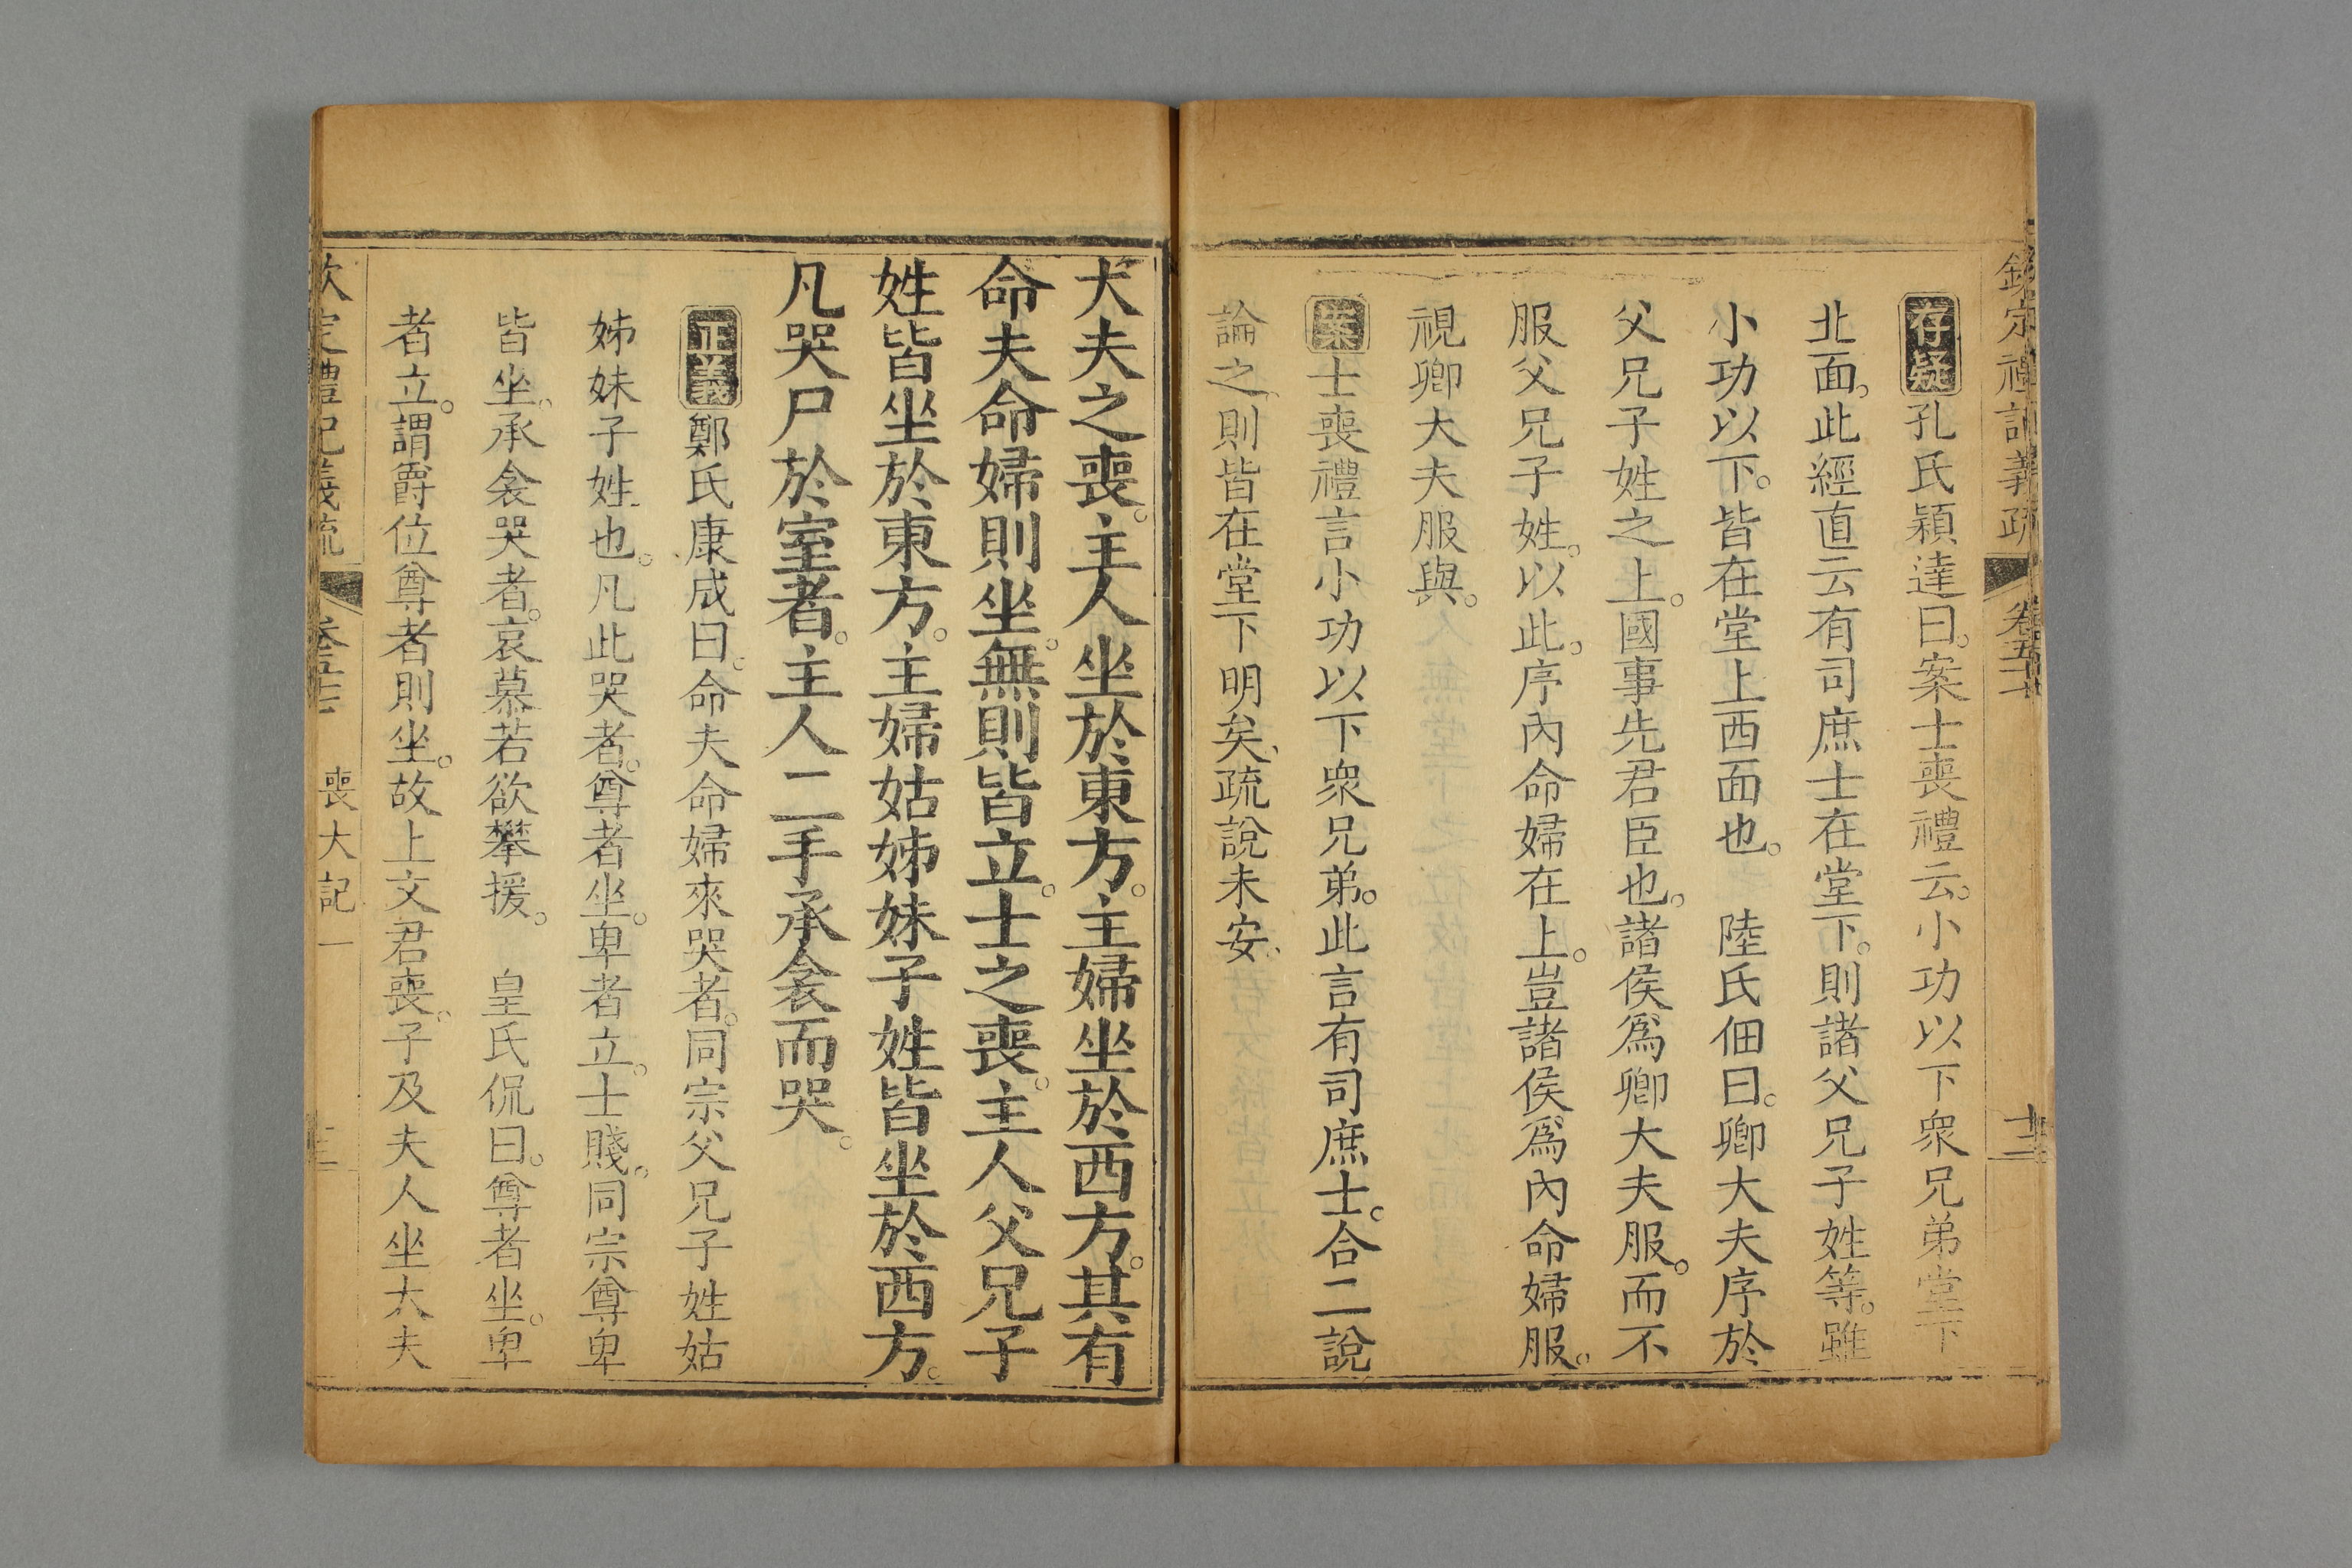 欽定禮記義疏 卷五十七 十二
存疑孔氏穎達曰。案士喪禮云。小功以下衆兄弟堂下
北面。此經直云有司庶士在堂下。則諸父兄子姓等。雖
小功以下。皆在堂上西面也。 陸氏佃曰。卿大夫序於
父兄子姓之上。國事先君臣也。諸侯爲卿大夫服。而不
服父兄子姓。以此。序內命婦在上。豈諸侯爲內命婦服。
視卿大夫服與。
案士喪禮言小功以下衆兄弟。此言有司庶士。合二說
論之。則皆在堂下明矣、疏說未安、
大夫之喪。主人坐於東方。主婦坐於西方。其有
命夫命婦則坐。無則皆立。士之喪。主人父兄子
姓皆坐於東方。主婦姑姊妹子姓皆坐於西方。
凡哭尸於室者。主人二手承衾而哭。
正義鄭氏康成曰。命夫命婦來哭者。同宗父兄子姓姑
姊妹子姓也。凡此哭者。尊者坐。卑者立。士賤。同宗尊卑
皆坐。承衾哭者。哀慕若欲攀援。 皇氏侃曰。尊者坐。卑
者立。謂爵位尊者則坐。故上文君喪。子及夫人坐大夫
欽定禮記義疏 喪大記一